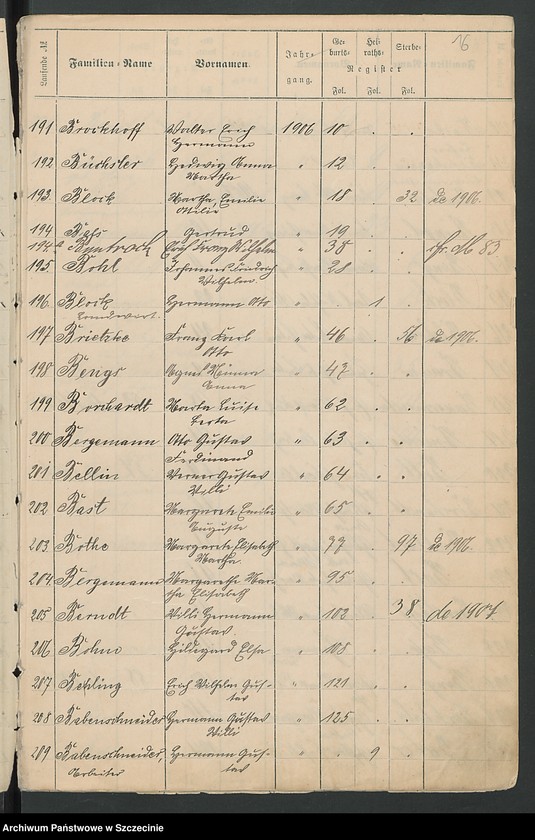 16
Laufende № Familien-Name Vornamen Jahrgang. Geburts- Heiraths- Sterbe- Register Fol. Fol. Fol.
191 Brockhoff Walter Erich 1906 10 . .
Hermann
192 Büchsler Hedwig Anna " 12 . .
Martha
193. Block Martha Emilie " 18 . 32 de 1906.
Ottilie
194 Gertrud " 19 . .
194a Franz Wilhelm " 38 . . 83
195. Bohl Johannes Friedrich " 28 . .
Wilhelm
196. Block Hermann Otto " . 1 .
197 Brietzke Franz Karl " 46 . 56 de 1906.
Otto
198 Bengs Agnes Minna " 47 . .
Anna
199 Borchardt Marta Luise " 62 . .
Berta
200 Bergemann Otto Gustav " 63 . .
Ferdinand
201 Bellin Werner Gustav " 64 . .
Willi
202 Bast Margarete Emilie " 65 . .
Auguste
203. Bothe Margarete Elisabeth " 77 . 97 de 1906.
Martha
204. Bergemann Margarethe Mar- " 95 . .
tha Elisabeth
205 Berndt Willi Hermann " 102 . 38 de 1907.
Gustav
206 Böhm Hildegard Elsa " 108 . .
207 Behling Erich Wilhelm Gus- " 121 . .
tav
208 Babenschneider Hermann Gustav " 125 . .
Willi
209 Babenschneider, Hermann Gus- " . 9 .
Arbeiter tav
Archiwum Państwowe w Szczecinie